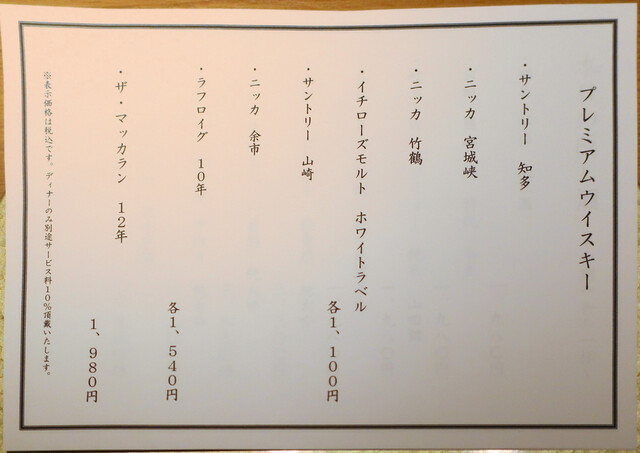 プレミアムウイスキー
・サントリー 知多
・ニッカ 宮城峡
・ニッカ 竹鶴
・イチローズモルト ホワイトラベル
各1、100円
・サントリー 山崎
・ニッカ 余市
・ラフロイグ 10年
各1、540円
・ザ・マッカラン 12年
1、980円
※表示価格は税込です。ディナーのみ別途サービス料10%頂戴いたします。